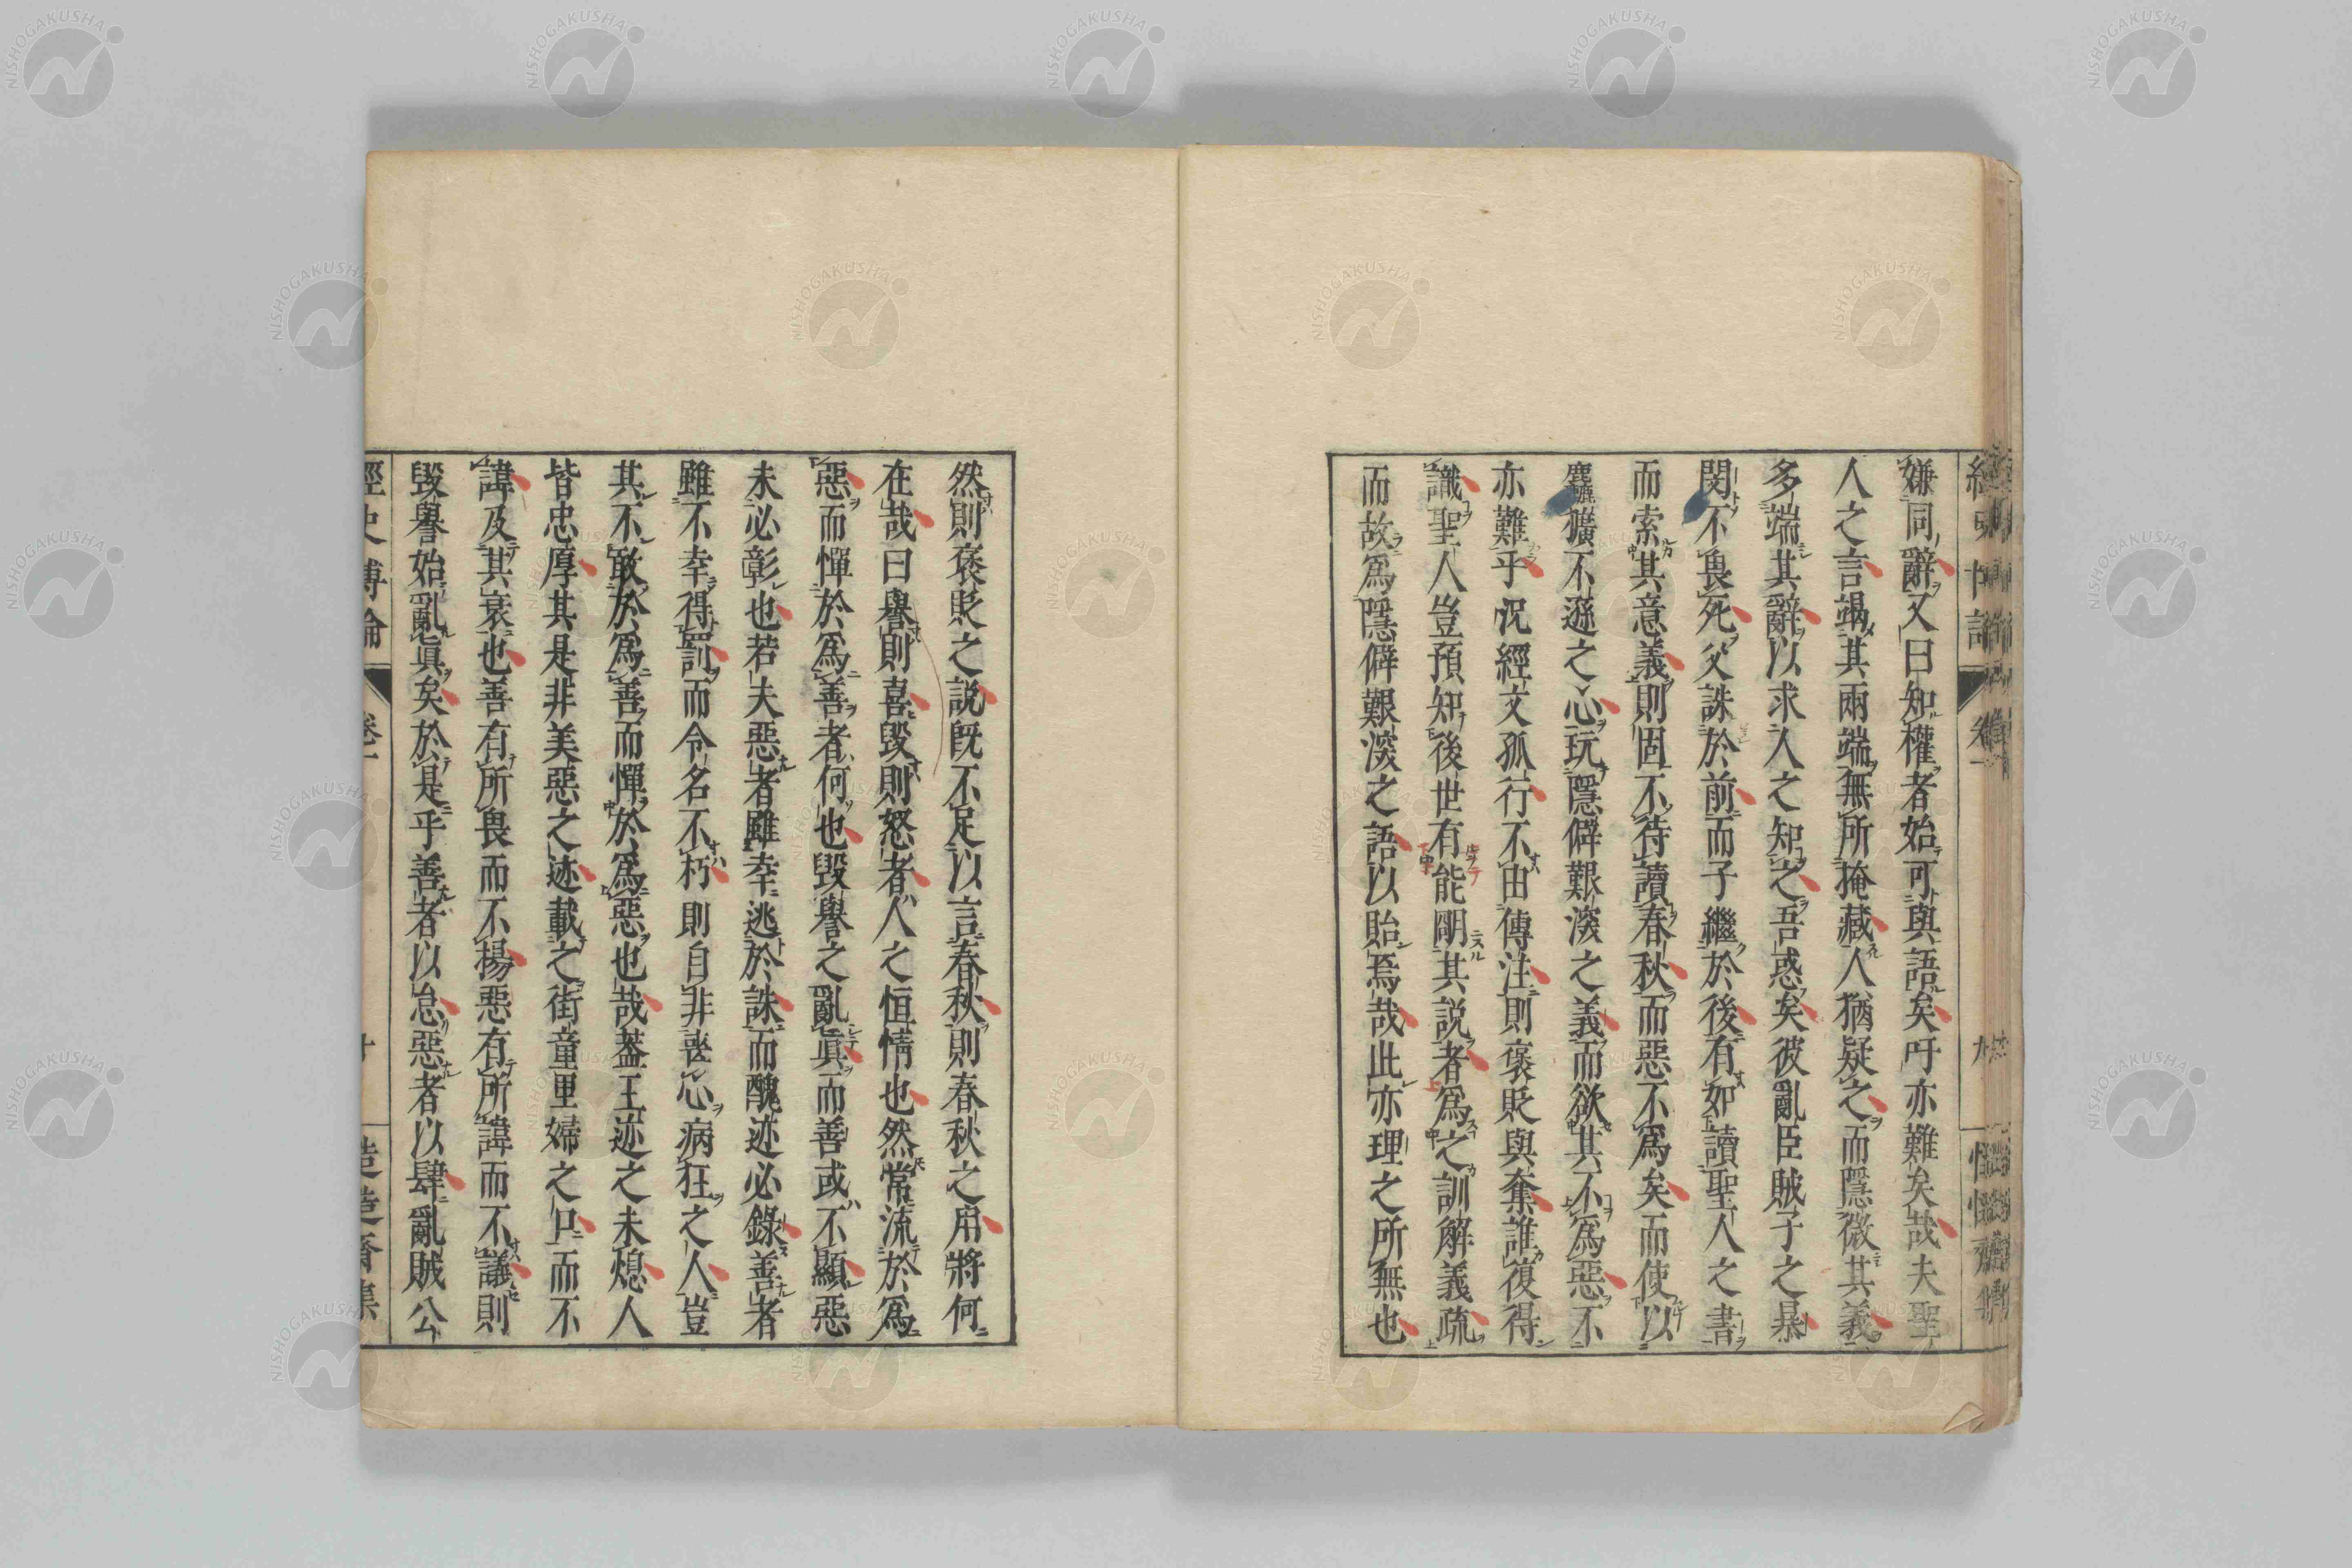 嫌同辭又曰知權者始可與語矣吁亦難矣哉夫聖
人之言竭其兩端無所掩藏人猶疑之而隱微其義
多端其辭以求人之知之吾惑矣彼亂臣賊子之暴
閔不畏死父誅於前而子繼於後有如讀聖人之書
而索其意義則固不待讀春秋而惡不爲矣而使以
麤獷不遜之心玩隱僻艱深之義而欲其不爲惡不
亦難乎況經文孤行不由傳注則褒貶與奪誰復得
識聖人豈預知後世有能剛其説者爲之訓解義疏
而故爲隱僻艱深之語以貽焉哉此亦理之所無也
然則褒貶之説既不足以言春秋則春秋之用將何
在哉曰譽則喜毀則怒者人之恒情也然常流於爲
惡而憚於爲善者何也毀譽之亂眞而善或不顯惡
未必彰也若夫惡者雖幸逃於誅而醜迹必錄善者
雖不幸得罰而令名不朽則自非喪心病狂之人豈
其不敢於爲善而憚於爲惡也哉蓋王迹之未熄人
皆忠厚其是非美惡之迹載之街童里婦之口而不
諱及其衰也善有所畏而不揚惡有所諱而不議則
毀譽始亂眞矣於是乎善者以怠惡者以肆亂賊公
經史博論
卷一
十
NISHOGAKUSHA